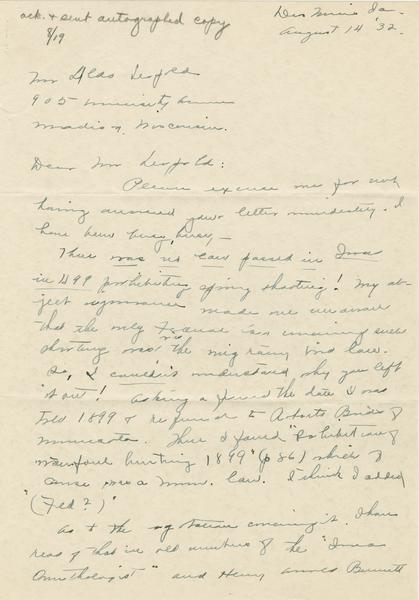 ack. & sent autographed copy
8/19
Des Moines Ia.
August 14 '32.
Mr Aldo Leopold
905 University Avenue
Madison, Wisconsin.
Dear Mr Leopold:
Please excuse me for not
having answered your letter immediately. I
have been busy, busy,—
There was no law passed in Iowa
in 1899 prohibiting spring shooting! My ab-
ject ignorance made me unaware
that the only law concerning such
shooting was the migratory bird law.
So, I couldn't understand why you left
it out! Asking a friend the date I was
told 1899 & referred to
Minnesota. There I found "Prohibition of
waterfowl hunting 1899" (p 86) which of
course was a Minn. law. I think I added
"(Fed?)"
As to the agitation concerning it, I have
read of that in old numbers of the "Iowa
Ornithologist" and Henry Bennett